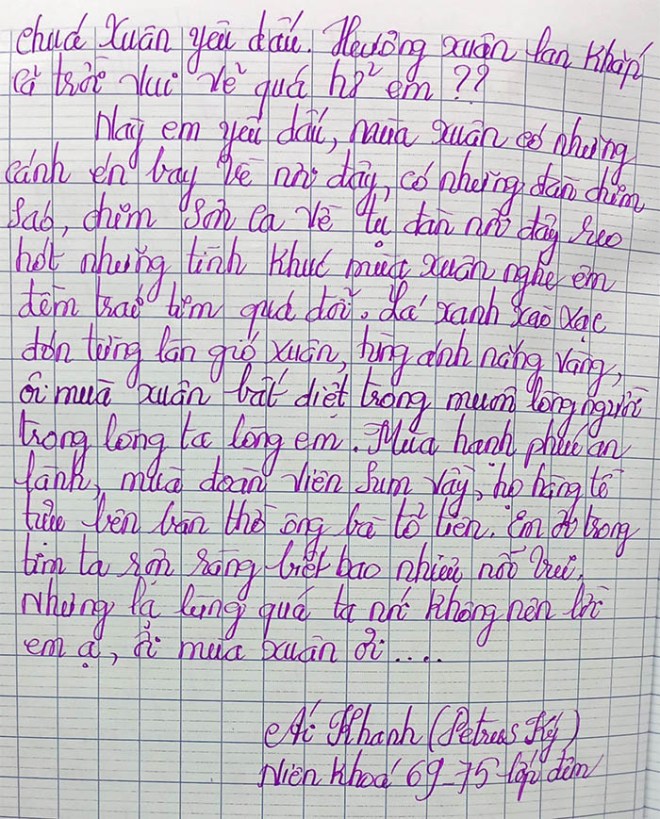 chuá Xuân yêu dấu. Hương xuân lan khắp
cả trời vui vẻ quá hở em ??
Này em yêu dấu, mùa xuân có những
cánh én bay về nơi đây, có những đàn chim
sáo, chim sơn ca về tụ đàn nơi đây reo
hót những tình khúc mùa xuân nghe êm
đềm trao tim quá đỗi. Lá xanh xào xạc
đón từng làn gió xuân, từng ánh nắng vàng,
ôi mùa xuân bất diệt trong muôn lòng người
trong lòng ta lòng em. Mùa hạnh phúc an
lành, mùa đoàn viên sum vầy, họ hàng tề
tựu bên bàn thờ ông bà tổ tiên. Em ơi trong
tim ta rộn ràng biết bao nhiêu nỗi vui,
Nhưng lạ lùng quá ta nói không nên lời
em ạ, ơi mùa xuân ơi ....
Ái Khanh (Petrus Ký)
Niên khoá 69_75 lớp đêm